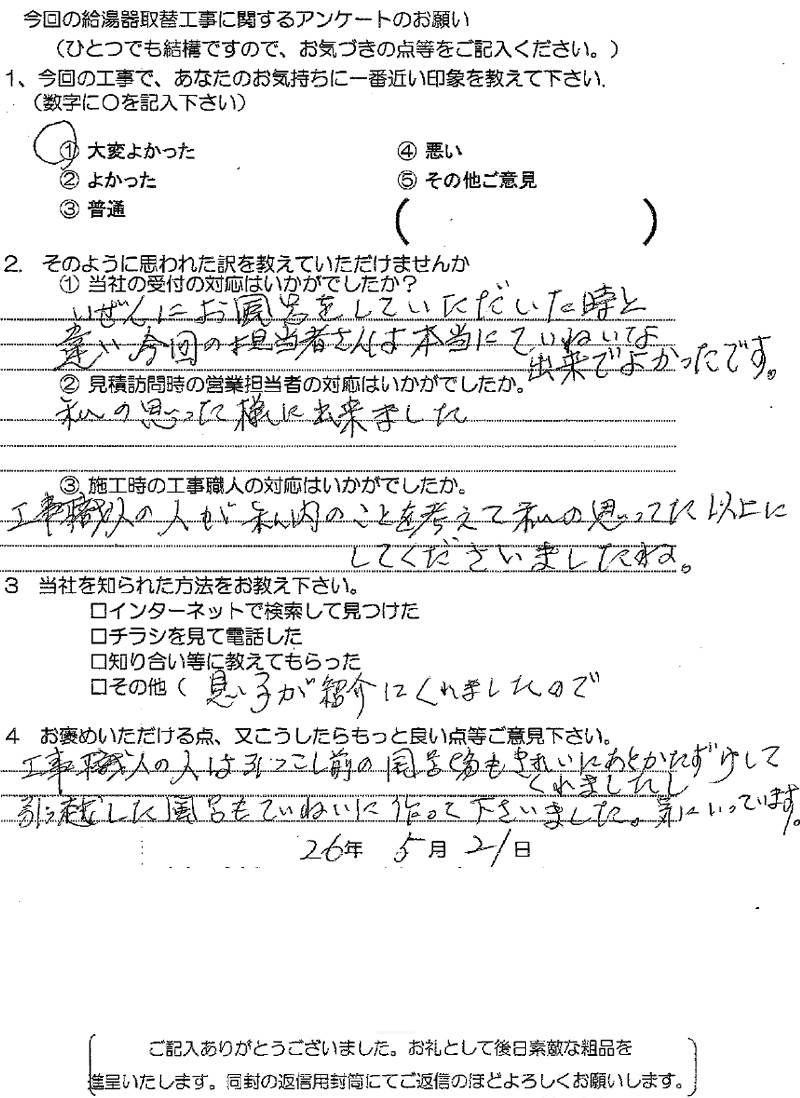 今回の給湯器取替工事に関するアンケートのお願い
（ひとつでも結構ですので、お気づきの点等をご記入ください。）
1、今回の工事で、あなたのお気持ちに一番近い印象を教えて下さい.
（数字に〇を記入下さい）
① 大変よかった ④ 悪い
② よかった ⑤ その他ご意見
③ 普通 （ ）
2. そのように思われた訳を教えていただけませんか
① 当社の受付の対応はいかがでしたか？
いぜんにお風呂をしていただいた時と
違い今回の担当者さんは本当にていねいな
出来でよかったです。
② 見積訪問時の営業担当者の対応はいかがでしたか。
私の思った様に出来ました
③ 施工時の工事職人の対応はいかがでしたか。
工事職人の人が内のことを考えて私の思ってた以上に
してくださいましたね。
3 当社を知られた方法をお教え下さい。
□インターネットで検索して見つけた
□チラシを見て電話した
□知り合い等に教えてもらった
□その他（ 息子が紹介にくれましたので
4 お褒めいただける点、又こうしたらもっと良い点等ご意見下さい。
工事職人の人は引っこし前の風呂場もきれいにあとかたずけして
くれましたし
引っ越した風呂もていねいに作って下さいました。気にいっています。
26年 5月 21日
ご記入ありがとうございました。お礼として後日素敵な粗品を
進呈いたします。同封の返信用封筒にてご返信のほどよろしくお願いします。